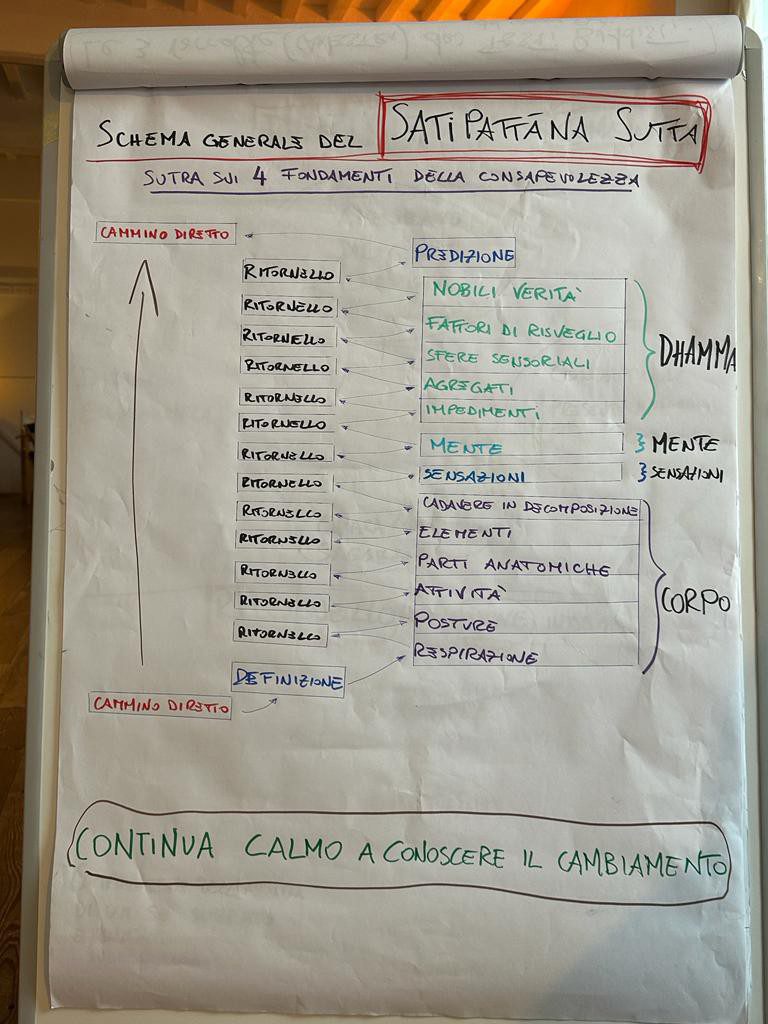 SCHEMA GENERALE DEL SATIPATTĀNA SUTTA
SUTRA SUI 4 FONDAMENTI DELLA CONSAPEVOLEZZA
CAMMINO DIRETTO
PREDIZIONE
RITORNELLO
NOBILI VERITÀ
RITORNELLO
FATTORI DI RISVEGLIO
RITORNELLO
SFERE SENSORIALI
RITORNELLO
AGREGATI
RITORNELLO
IMPEDIMENTI
DHAMMA
RITORNELLO
MENTE
MENTE
RITORNELLO
SENSAZIONI
SENSAZIONI
RITORNELLO
CADAVERE IN DECOMPOSIZIONE
RITORNELLO
ELEMENTI
RITORNELLO
PARTI ANATOMICHE
RITORNELLO
ATTIVITÀ
RITORNELLO
POSTURE
RITORNELLO
RESPIRAZIONE
CORPO
DEFINIZIONE
CAMMINO DIRETTO
CONTINUA CALMO A CONOSCERE IL CAMBIAMENTO